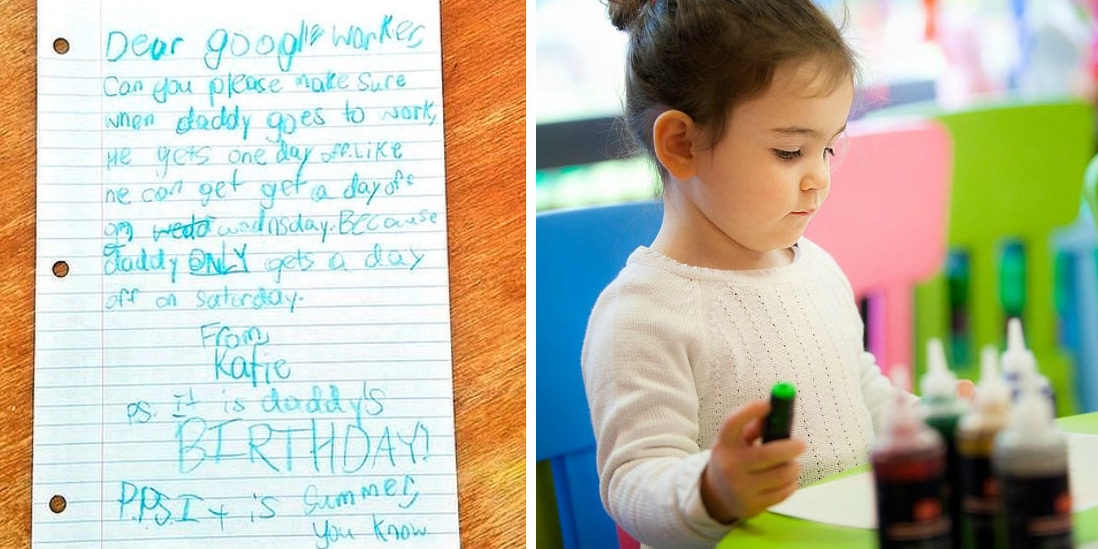 Dear google worker,
Can you please make sure
when daddy goes to work,
He gets one day off. Like
he can get get a day off
on wedo wednsday. Because
daddy ONLY gets a day
off on saturday.
From,
Katie
PS. It is daddy's
BIRTHDAY!
P.P.S. It is Summer,
you know